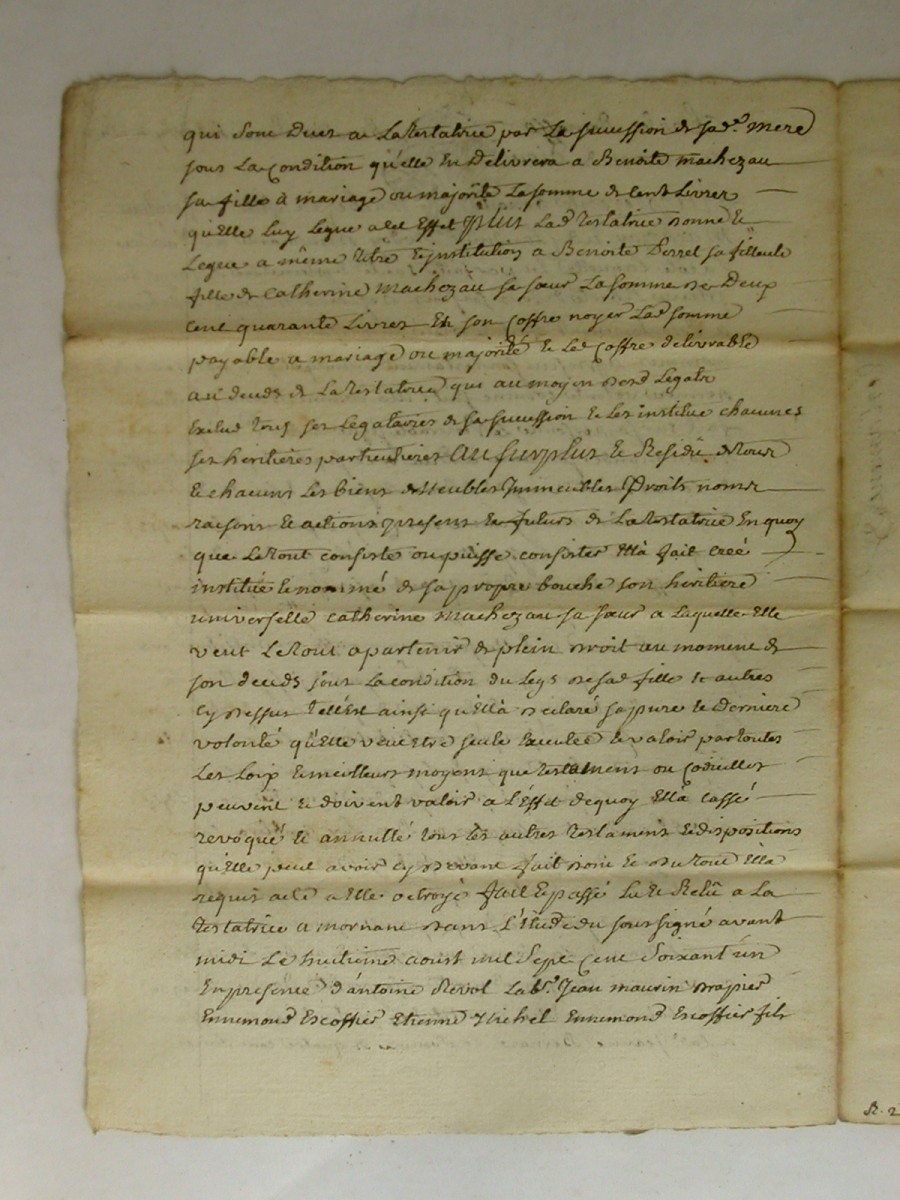 qui sont dues a La testatrice par La sucession de sad.e mere
sous La condition qu'elle en delivrera a Benoite machezau
sa fille a mariage ou majorité La somme de Cent Livres
qu'elle Luy Legue a cet Effet Plus Lad. testatrice donne et
Legue a même titre d'institution a Benoite Perret sa filleule
fille de Catherine Machezau sa sœur La somme de Deux
cent quarante Livres et son Coffre noyer Lad. somme
payable a mariage ou majorité et Led. Coffre delivrable
au deceds de La testatrice qui au moyen desd. Legats
Exclud tous ses Legataires de sa sucession et Les institue chacunes
ses heritieres particulieres Au surplus et Residû de tous
et chacuns Les biens Meubles Immeubles Droits noms
raisons et actions presens et futurs de La testatrice En quoy
que Le tout consiste ou puisse consister Ella fait creé
institué et nommé de sa propre bouche son heritiere
universelle Catherine Machezau sa sœur a Laquelle Elle
veut Le tout apartenir de plein droit au moment de
son deceds sous La condition du Legs de sad. fille et autres
cy dessus tell'Est ainsi qu'Ella declaré sa pure et Derniere
volonté qu'Elle veut etre seule Executée et valoir par toutes
Les Loix et meilleurs moyens que testament ou Codicilles
peuvent et doivent valoir a L'Effet dequoy Ella cassé
revoqué et annullé tous Les autres testament et dispositions
qu'Elle peut avoir cy devant fait dont et du tout Ella
requis acte a Elle octroyé fait et passé Lu et Relû a La
testatrice a mornant dans L'étude du soussigné avant
midi Le huitieme aoust mil Sept Cent Soixant un
En presence d'antoine Revol Lab.r Jean maurin drapier
Ennemond Escoffier Etienne Michel Ennemond Escoffier fils
R. 2